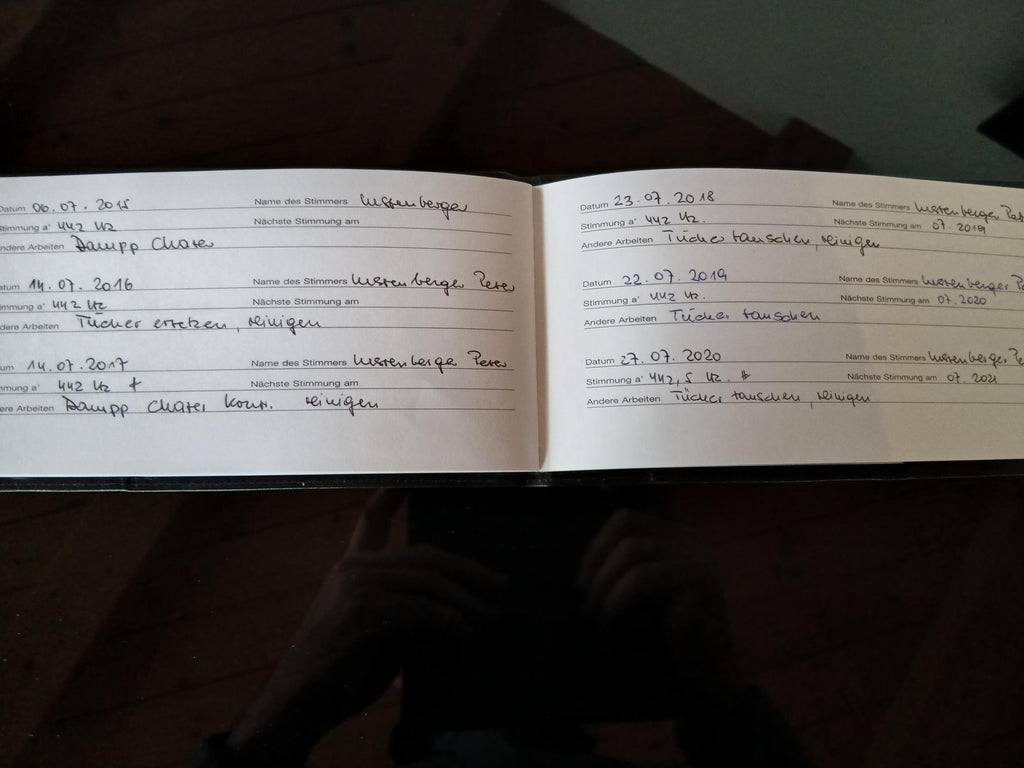 Datum 06.07.2015 Name des Stimmers
Stimmung a' 442 Hz Nächste Stimmung am
Andere Arbeiten Dampp Chaser
atum 14.07.2016 Name des Stimmers Peter
mmung a' 442 Hz Nächste Stimmung am
dere Arbeiten Tücher ersetzen, reinigen
um 14.07.2017 Name des Stimmers Peter
mmung a' 442 Hz + Nächste Stimmung am
ere Arbeiten Dampp Chaser kontr. reinigen
Datum 23.07.2018 Name des Stimmers
Stimmung a' 442 Hz. Nächste Stimmung am 07.2019
Andere Arbeiten Tücher tauschen, reinigen
Datum 22.07.2019 Name des Stimmers
Stimmung a' 442 Hz. Nächste Stimmung am 07.2020
Andere Arbeiten Tücher tauschen
Datum 27.07.2020 Name des Stimmers
Stimmung a' 442,5 Hz. Nächste Stimmung am 07.2021
Andere Arbeiten Tücher tauschen, reinigen